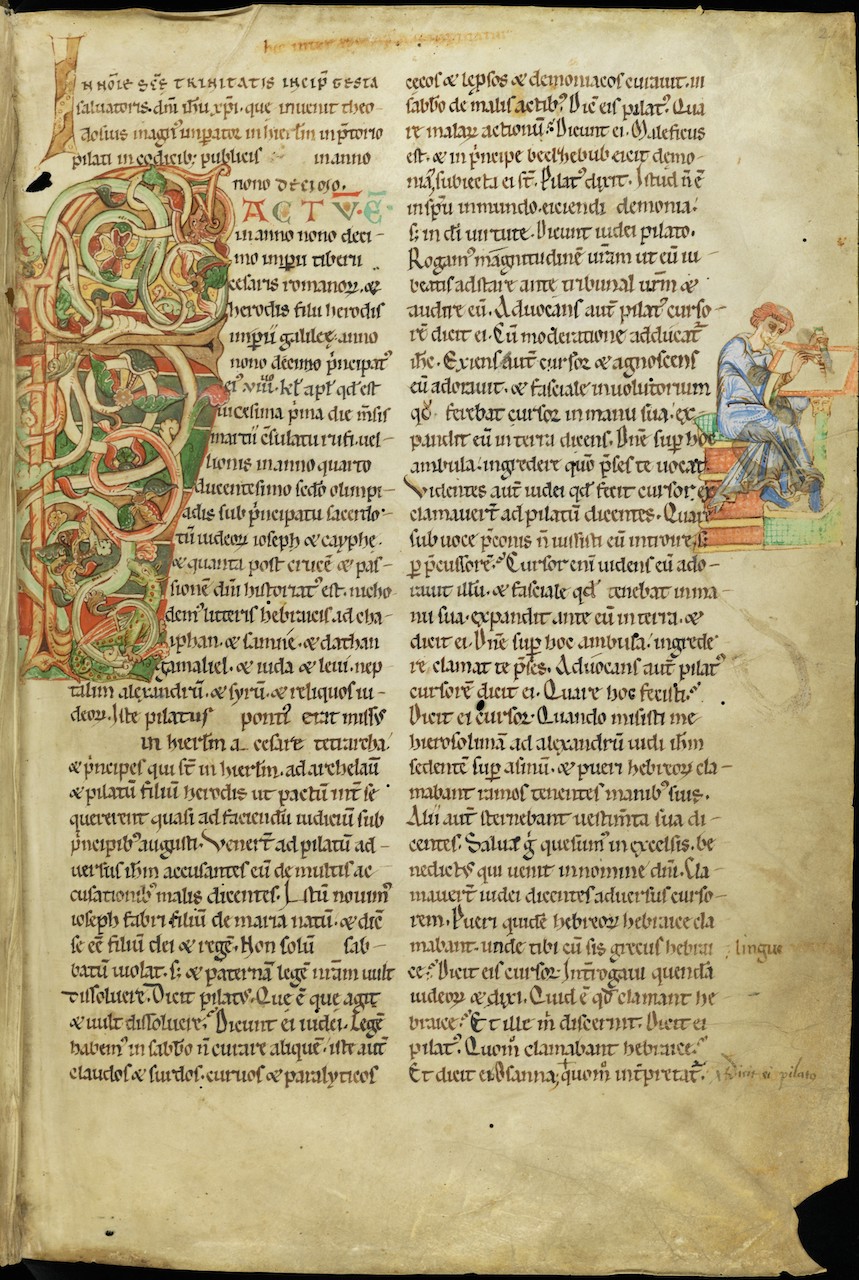 IN NOIE SCE TRINITATIS INCIP̄ GESTA
saluatoris. dn̄i ih̄u xp̄i. que inuenit theo-
dosius magn᷒ imperator in hierl̄m in p̄torio
pilati in codicib; publicis in anno
nono decimo.
FACTV̄.Ē.
in anno nono deci-
mo imp̄ii tiberii
cesaris romanoꝝ. &
herodis filii herodis
imp̄ii galileę. anno
nono decimo p̄ncipat᷒
ei᷒ viii. kl̄ ap̄l qd̄ est
uicesima p̄ma die m̄sis
martii c̄sulatu rufi. uel-
lionis in anno quarto
ducentesimo sc̄do olimpi-
adis sub p̄ncipatu sacerdo-
tū iudeoꝝ ioseph & cayphe.
& quanta post crucē & pas-
sionē dn̄i historiat᷒ est. nicho-
dem᷒ litteris hebraicis ad cha-
iphan. & sannie. & dathan
gamaliel. & iuda & leui. nep-
talim alexandrū. & syrū. & reliquos iu-
deoꝝ. Iste pilatus ponti᷒ erat missus
in hierl̄m a cesare tetrarcha.
& p̄ncipes qui st̄ in hierl̄m. ad archelaū
& pilatū filiū herodis ut pactū int̄ se
quererent quasi ad faciendū iudiciū sub
p̄ncipib᷒ augusti. Venert̄ ad pilatū ad-
uersus ih̄m accusantes eū de multis ac
cusationib᷒ malis dicentes. Istū nouim᷒
ioseph fabri filiū de maria natū. & diē
se eē filiū dei & regē. Non solū sab-
batū uiolat. s; & paternā legē nr̄am uult
dissoluere. Dicit pilatus. Que ē que agit
& uult dissoluere? Dicunt ei iudei. Legē
habem᷒ in sabb̄o n̄ curare aliquē. iste aut̄
claudos & surdos. curuos & paralyticos
cecos & lep̄sos & demoniacos curauit. in
sabb̄o de malis actib᷒. Dic̄ eis pilat᷒. Qua
re malaꝝ actionū? Dicunt ei. Maleficus
est. & in p̄ncipe beelzebub eicit demo-
nia, subiecta ei st̄. Pilat᷒ dixit. Istud n̄ ē
in sp̄u inmundo. eiciendi demonia.
s; in dī uirtute. Dicunt iudei pilato.
Rogam᷒ magnitudinē ur̄am ut eū iu-
beatis adstare ante tribunal ur̄m &
audire eū. Aduocans aut̄ pilat᷒ curso-
rē dicit ei. Cū moderatione adducat̄
ih̄c. Exiens aut̄ cursor & agnoscens
eū adorauit. & fasciale inuolutorium
qd̄ ferebat cursor in manu sua. ex
pandit eū in terra dicens. Dn̄e sup̄ hoc
ambula. ingredere quō p̄ses te uocat.
Videntes aut̄ iudei qd̄ fecit cursor. ex
clamauert̄ ad pilatū dicentes. Quare
sub uoce p̄conis n̄ iussisti eū introire. s;
p̄ p̄cussorē? Cursor eni uidens eū ado-
rauit illū. & fasciale qd̄ tenebat in ma-
nu sua. expandit ante eū in terra. &
dicit ei. Dn̄e sup̄ hoc ambula. ingrede
re clamat te p̄ses. Aduocans aut̄ pilat᷒
cursorē dicit ei. Quare hoc fecisti?
Dicit ei cursor. Quando misisti me
hierosolimā ad alexandrū uidi ih̄m
sedentē sup̄ asinū. & pueri hebreoꝝ cla-
mabant ramos tenentes manib᷒ suis.
Alii aut̄ sternebant uestim̄ta sua di-
centes. Salua g̊ quesum᷒ in excelsis. be
nedictus qui uenit in nomine dn̄i. Cla-
mauert̄ iudei dicentes aduersus curso-
rem. Pueri quidē hebreoꝝ hebraice cla
mabant. unde tibi cū sis grecus hebrai lingue
ce? Dicit eis cursor. Intr̄ogaui quendā
iudeoꝝ & dixi. Quid ē qd̄ clamant he
braice? Et ille m̄ discernit. Dicit ei
pilat᷒. Quom̄ clamabant hebraice?
Et dicit ei. Osanna; quom̄ int̄pretat̄. Dicit ei pilato